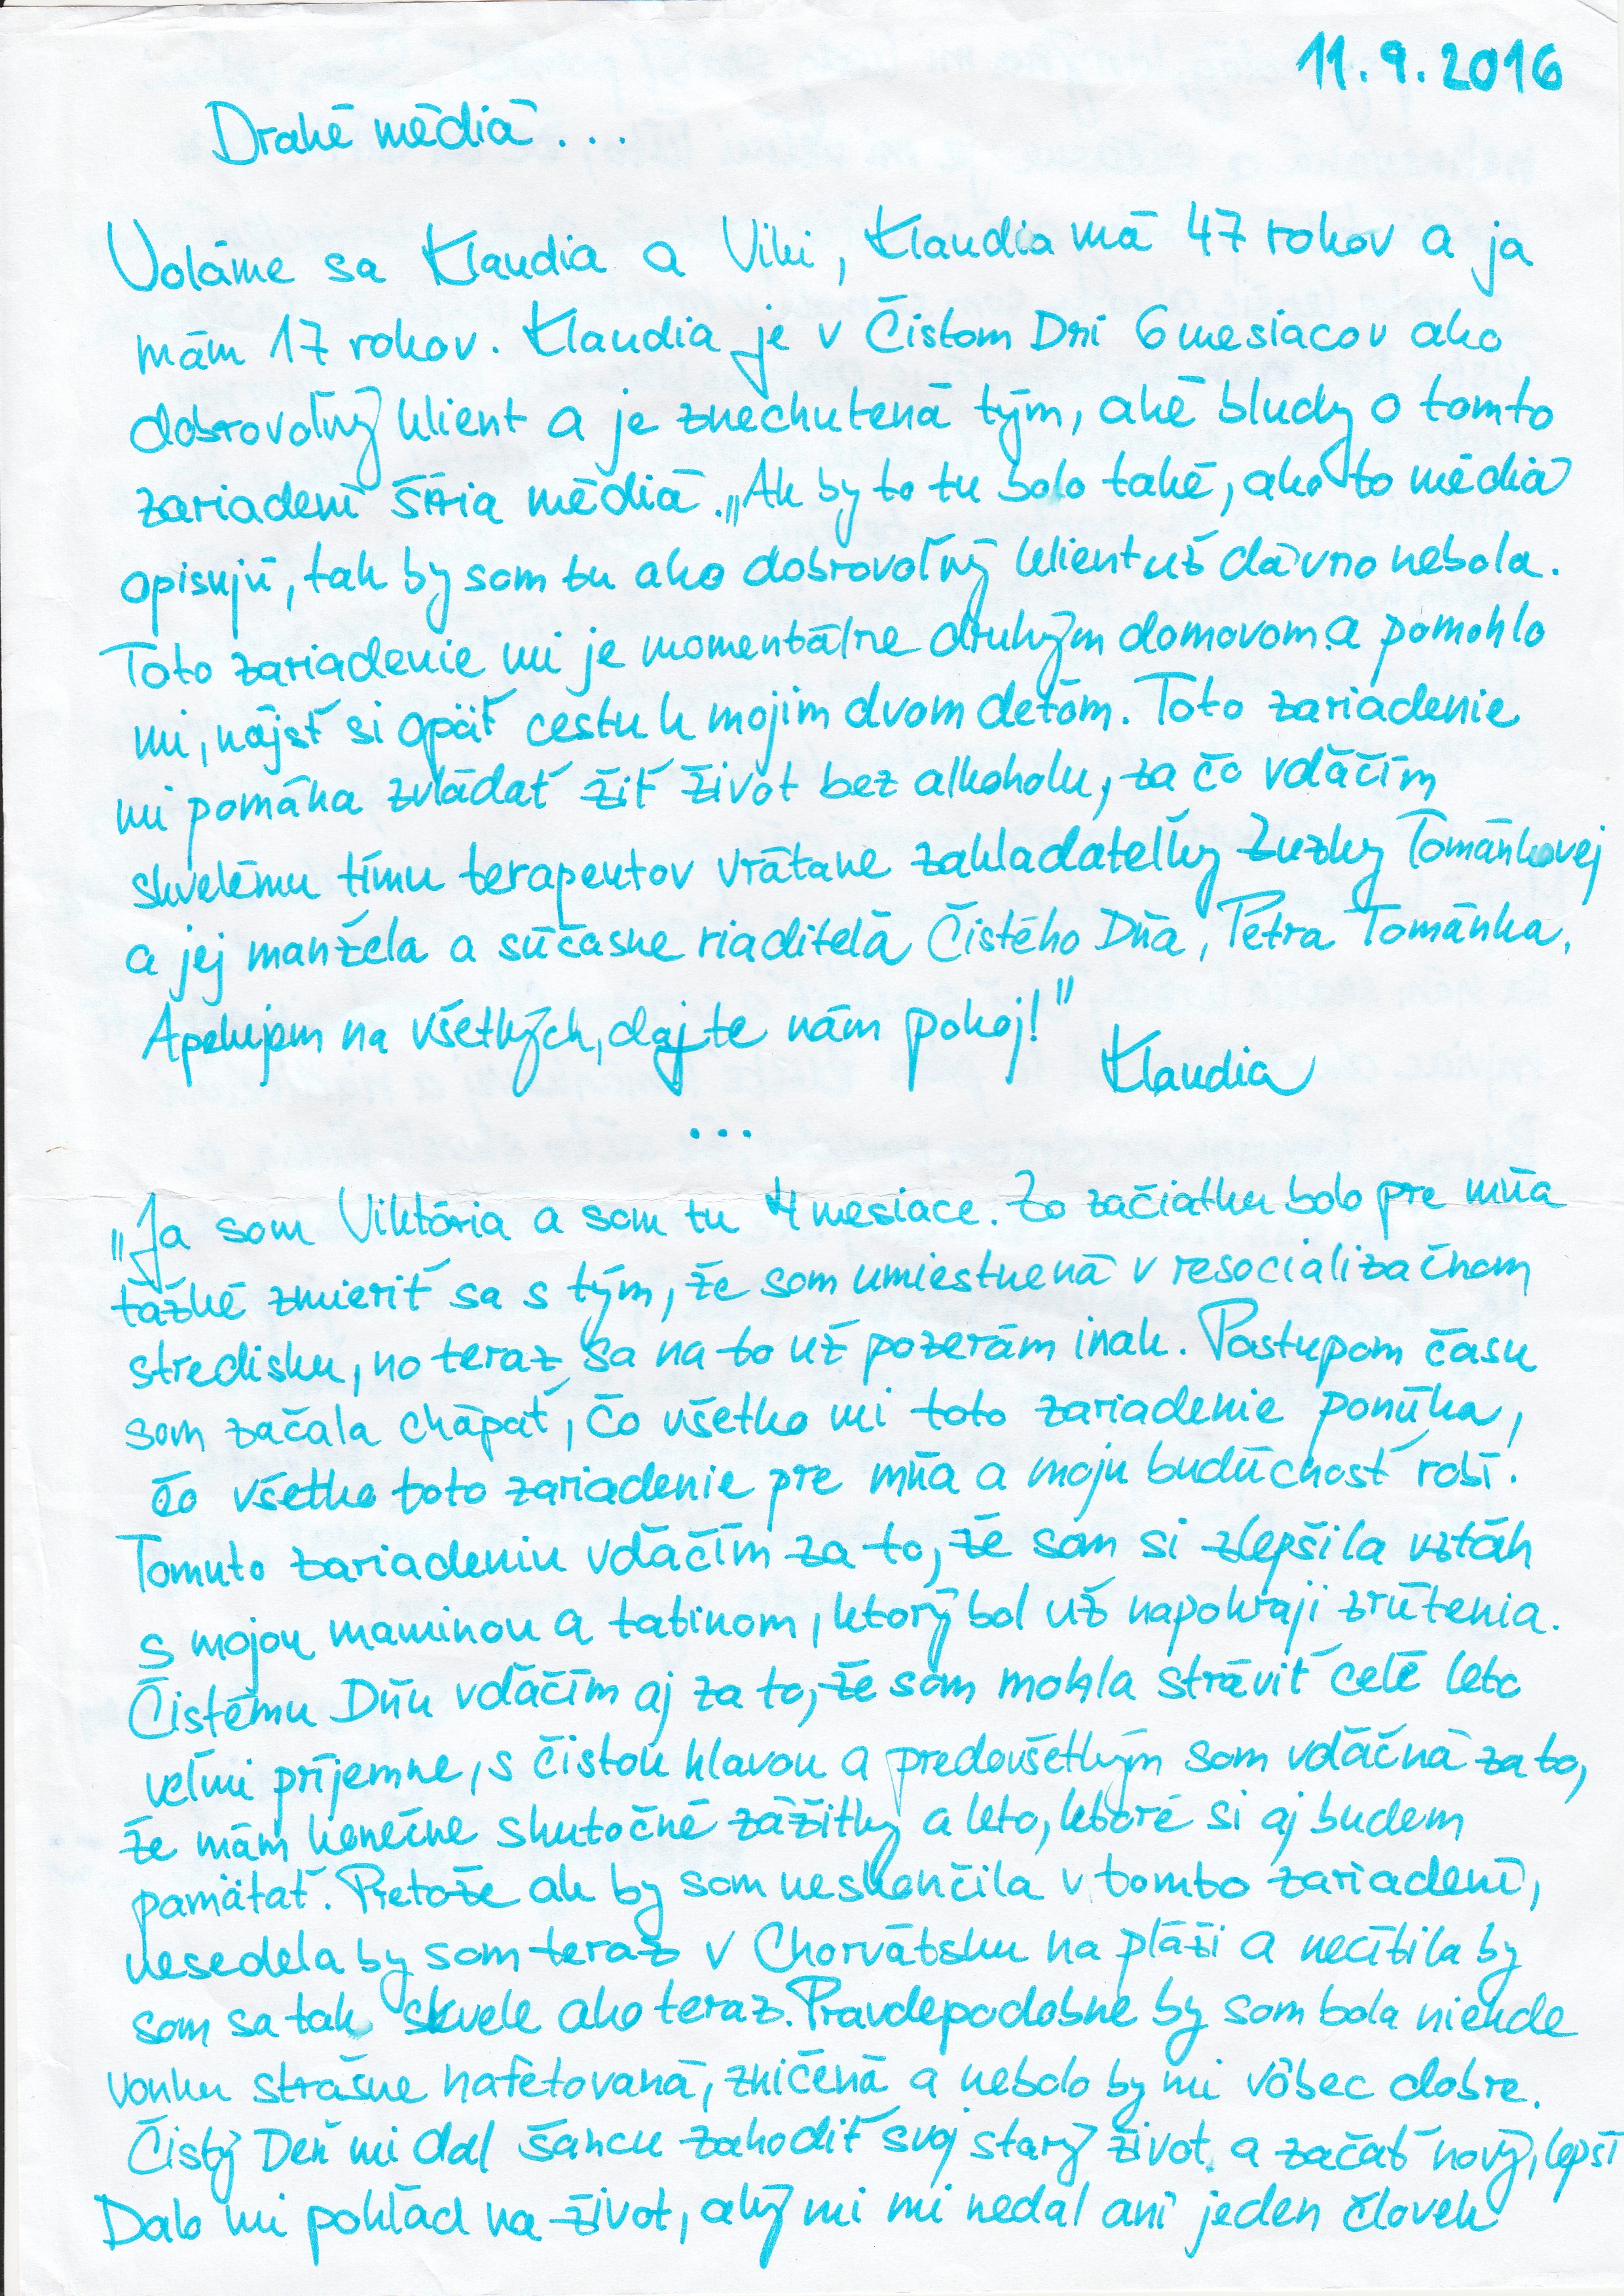 11.9.2016
Drahé médiá...
Voláme sa Klaudia a Viki, Klaudia má 47 rokov a ja
mám 17 rokov. Klaudia je v Čistom Dni 6 mesiacov ako
dobrovoľný klient a je znechutená tým, aké bludy o tomto
zariadení šíria médiá. „Ak by to tu bolo také, ako to médiá
opisujú, tak by som tu ako dobrovoľný klient už dávno nebola.
Toto zariadenie mi je momentálne druhým domovom a pomohlo
mi, nájsť si opäť cestu k mojim dvom deťom. Toto zariadenie
mi pomáha zvládať žiť život bez alkoholu, za čo vďačím
skvelému tímu terapeutov vrátane zakladateľky Zuzky Tománkovej
a jej manžela a súčasne riaditeľa Čistého Dňa, Petra Tománka.
Apelujem na všetkých, dajte nám pokoj!"
Klaudia
...
„Ja som Viktória a som tu 4 mesiace. Zo začiatku bolo pre mňa
ťažké zmieriť sa s tým, že som umiestnená v resocializačnom
stredisku, no teraz sa na to už pozerám inak. Postupom času
som začala chápať, čo všetko mi toto zariadenie ponúka,
čo všetko toto zariadenie pre mňa a moju budúcnosť robí.
Tomuto zariadeniu vďačím za to, že som si zlepšila vzťah
s mojou maminou a tatinom, ktorý bol už napokraji zrútenia.
Čistému Dňu vďačím aj za to, že som mohla stráviť celé leto
veľmi príjemne, s čistou hlavou a predovšetkým som vďačná za to,
že mám konečne skutočné zážitky a leto, ktoré si aj budem
pamätať. Pretože ak by som neskončila v tomto zariadení,
nesedela by som teraz v Chorvátsku na pláži a necítila by
som sa tak skvele ako teraz. Pravdepodobne by som bola niekde
vonku strašne nafetovaná, zničená a nebolo by mi vôbec dobre.
Čistý Deň mi dal šancu zahodiť svoj starý život a začať nový, lepší
Dalo mi pohľad na život, aký mi mi nedal ani jeden človek